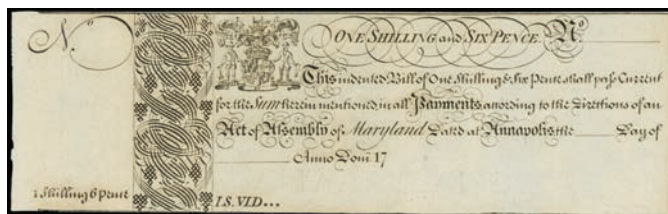 N.º
1 Shilling 6 Pence
ONE SHILLING and SIX PENCE Nº
This indented Bill of One Shilling & Six Pence shall pass Current
for the Sum herein mentioned in all Payments according to the Directions of an
Act of Assembly of Maryland Dated at Annapolis the Day of
Anno Dom 17
1S. VID...